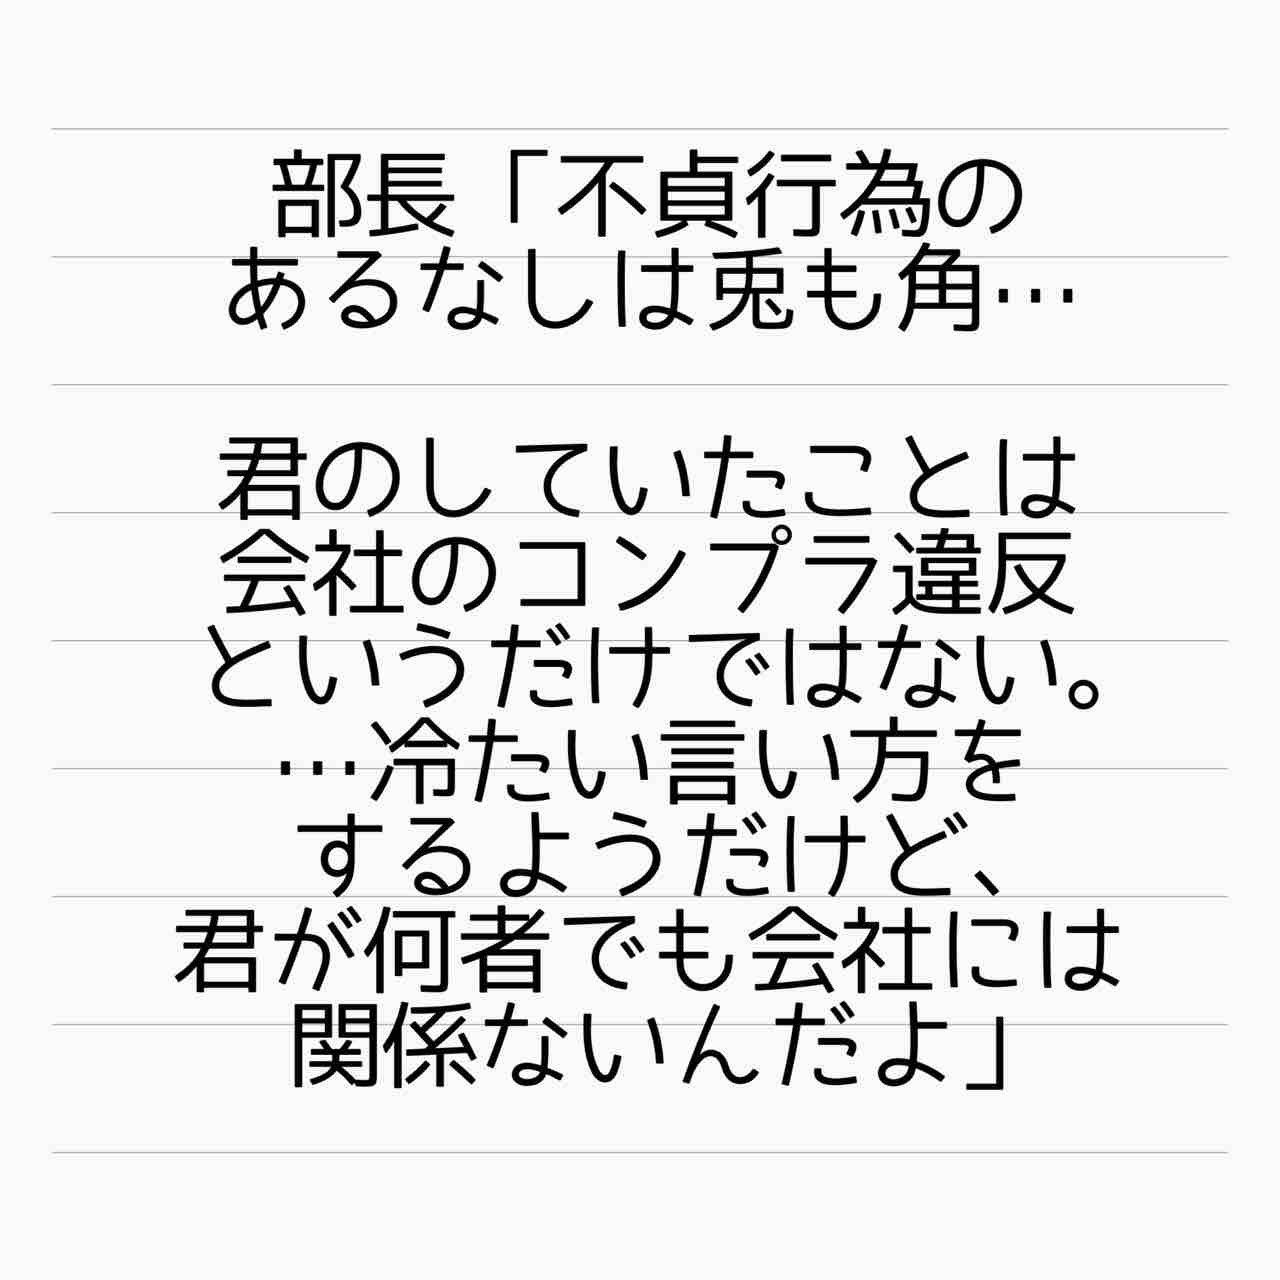 部長「不貞行為の
あるなしは兎も角…
君のしていたことは
会社のコンプラ違反
というだけではない。
…冷たい言い方を
するようだけど、
君が何者でも会社には
関係ないんだよ」